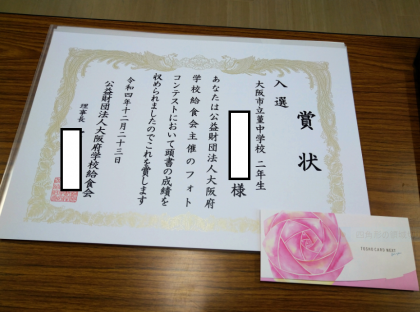 賞状
入選
大阪市立菫中学校 二年生
様
あなたは公益財団法人大阪府
学校給食会主催のフォト
コンテストにおいて頭書の成績を
収められましたのでこれを賞します
令和四年十二月二十三日
公益財団法人大阪府学校給食会
理事長